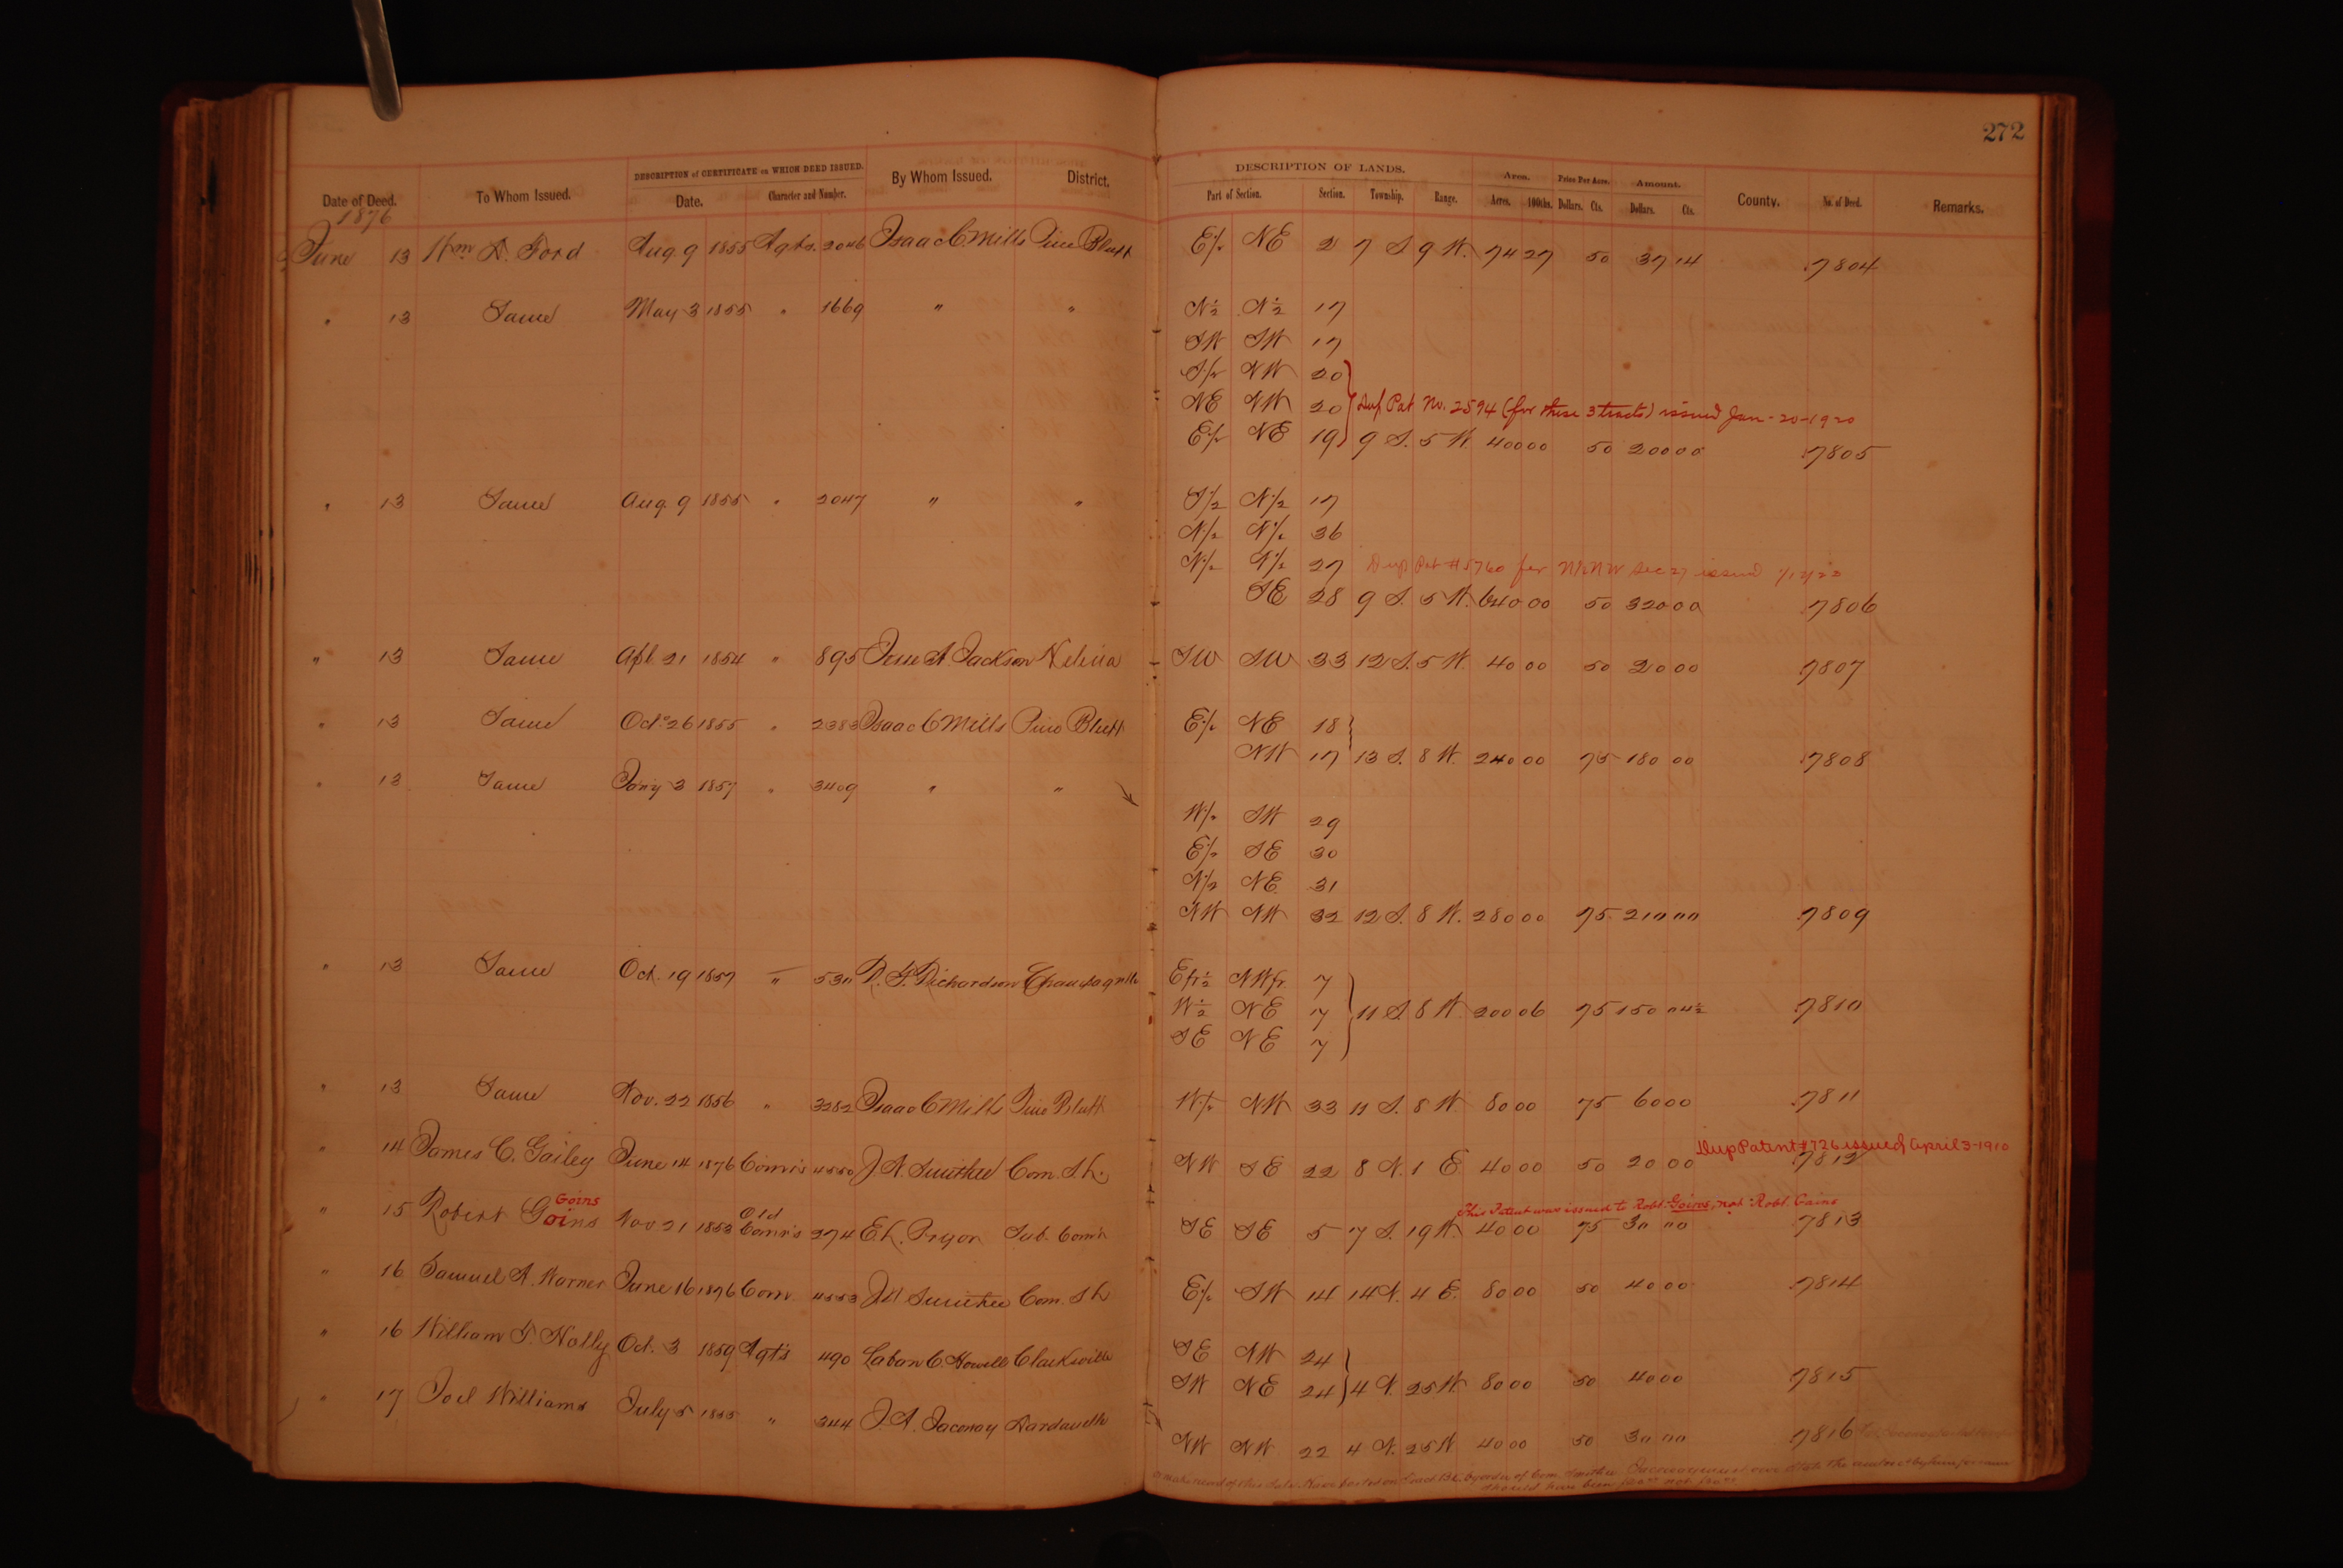 272
DESCRIPTION of CERTIFICATE on WHICH DEED ISSUED. DESCRIPTION OF LANDS. Area. Price Per Acre. Amount.
Date of Deed. To Whom Issued. Date. Character and Number. By Whom Issued. District. Part of Section. Section. Township. Range. Acres. 100ths. Dollars. Cts. Dollars. Cts. County. No. of Deed. Remarks.
1876
June 13 Wm D. Ford Aug. 9 1855 Agts. 2046 Isaac C Mills Pine Bluff E/2 NE 2 7 S 9 W. 74 27 50 37 14 7804
" 13 Same May 3 1855 " 1669 " " N½ N½ 17
SW SW 17
S/2 NW 20
NE NW 20 Dup Pat No. 2594 (for these 3 tracts) issued Jan-20-1920
E/2 NE 19 9 S. 5 W. 400 00 50 200 00 7805
" 13 Same Aug. 9 1855 " 2047 " " S/2 N/2 17
N/2 N/2 36
N/2 N/2 27 Dup Pat #5760 for N/2 NW Sec 27 issued
SE 28 9 S. 5 W. 640 00 50 320 00 7806
" 13 Same Apl. 21 1854 " 895 Jesse A Jackson Helena SW SW 33 12 S. 5 W. 40 00 50 20 00 7807
" 13 Same Oct. 26 1855 " 2383 Isaac C Mills Pine Bluff E/2 NE 18
NW 17 13 S. 8 W. 240 00 75 180 00 7808
" 13 Same Jan'y 3 1857 " 3409 " "
W/2 SW 29
E/2 SE 30
N/2 NE 31
NW NW 32 12 S. 8 W. 280 00 75 210 00 7809
" 13 Same Oct. 19 1857 " 530 Richardson Champagnolle E fr ½ NW fr 7
W½ NE 7 11 S. 8 W 200 06 75 150 04½ 7810
SE NE 7
" 13 Same Nov. 22 1856 " 3282 Isaac C Mills Pine Bluff W/2 NW 33 11 S. 8 W 80 00 75 60 00 7811
Dup Patent #726 issued April 3-1910
" 14 James C. Gailey June 14 1876 Comr's 4550 J. N. Smithee Com. S. L. NW SE 22 8 N. 1 E 40 00 50 20 00 7812
Goins This Patent was issued to Robt. Goins, not Robt. Gains
" 15 Robert Goins Nov 21 1853 Old Comr's 274 E. L. Pryor Sub. Com'r SE SE 5 7 S. 19 W. 40 00 75 30 00 7813
" 16 Samuel A. Warner June 16 1876 Com. 4553 J N Smithee Com. S L E/2 SW 14 14 N. 4 E. 80 00 50 40 00 7814
" 16 William F. Holly Oct. 3 1859 Agt's 490 Laban C. Howell Clarksville SE NW 24
SW NE 24 4 N. 25 W 80 00 50 40 00 7815
" 17 Joel Williams July 5 1855 " 344 J. A. Jacoway Dardanelle
NW NW 22 4 N. 25 W 40 00 50 30 00 7816
should have been not